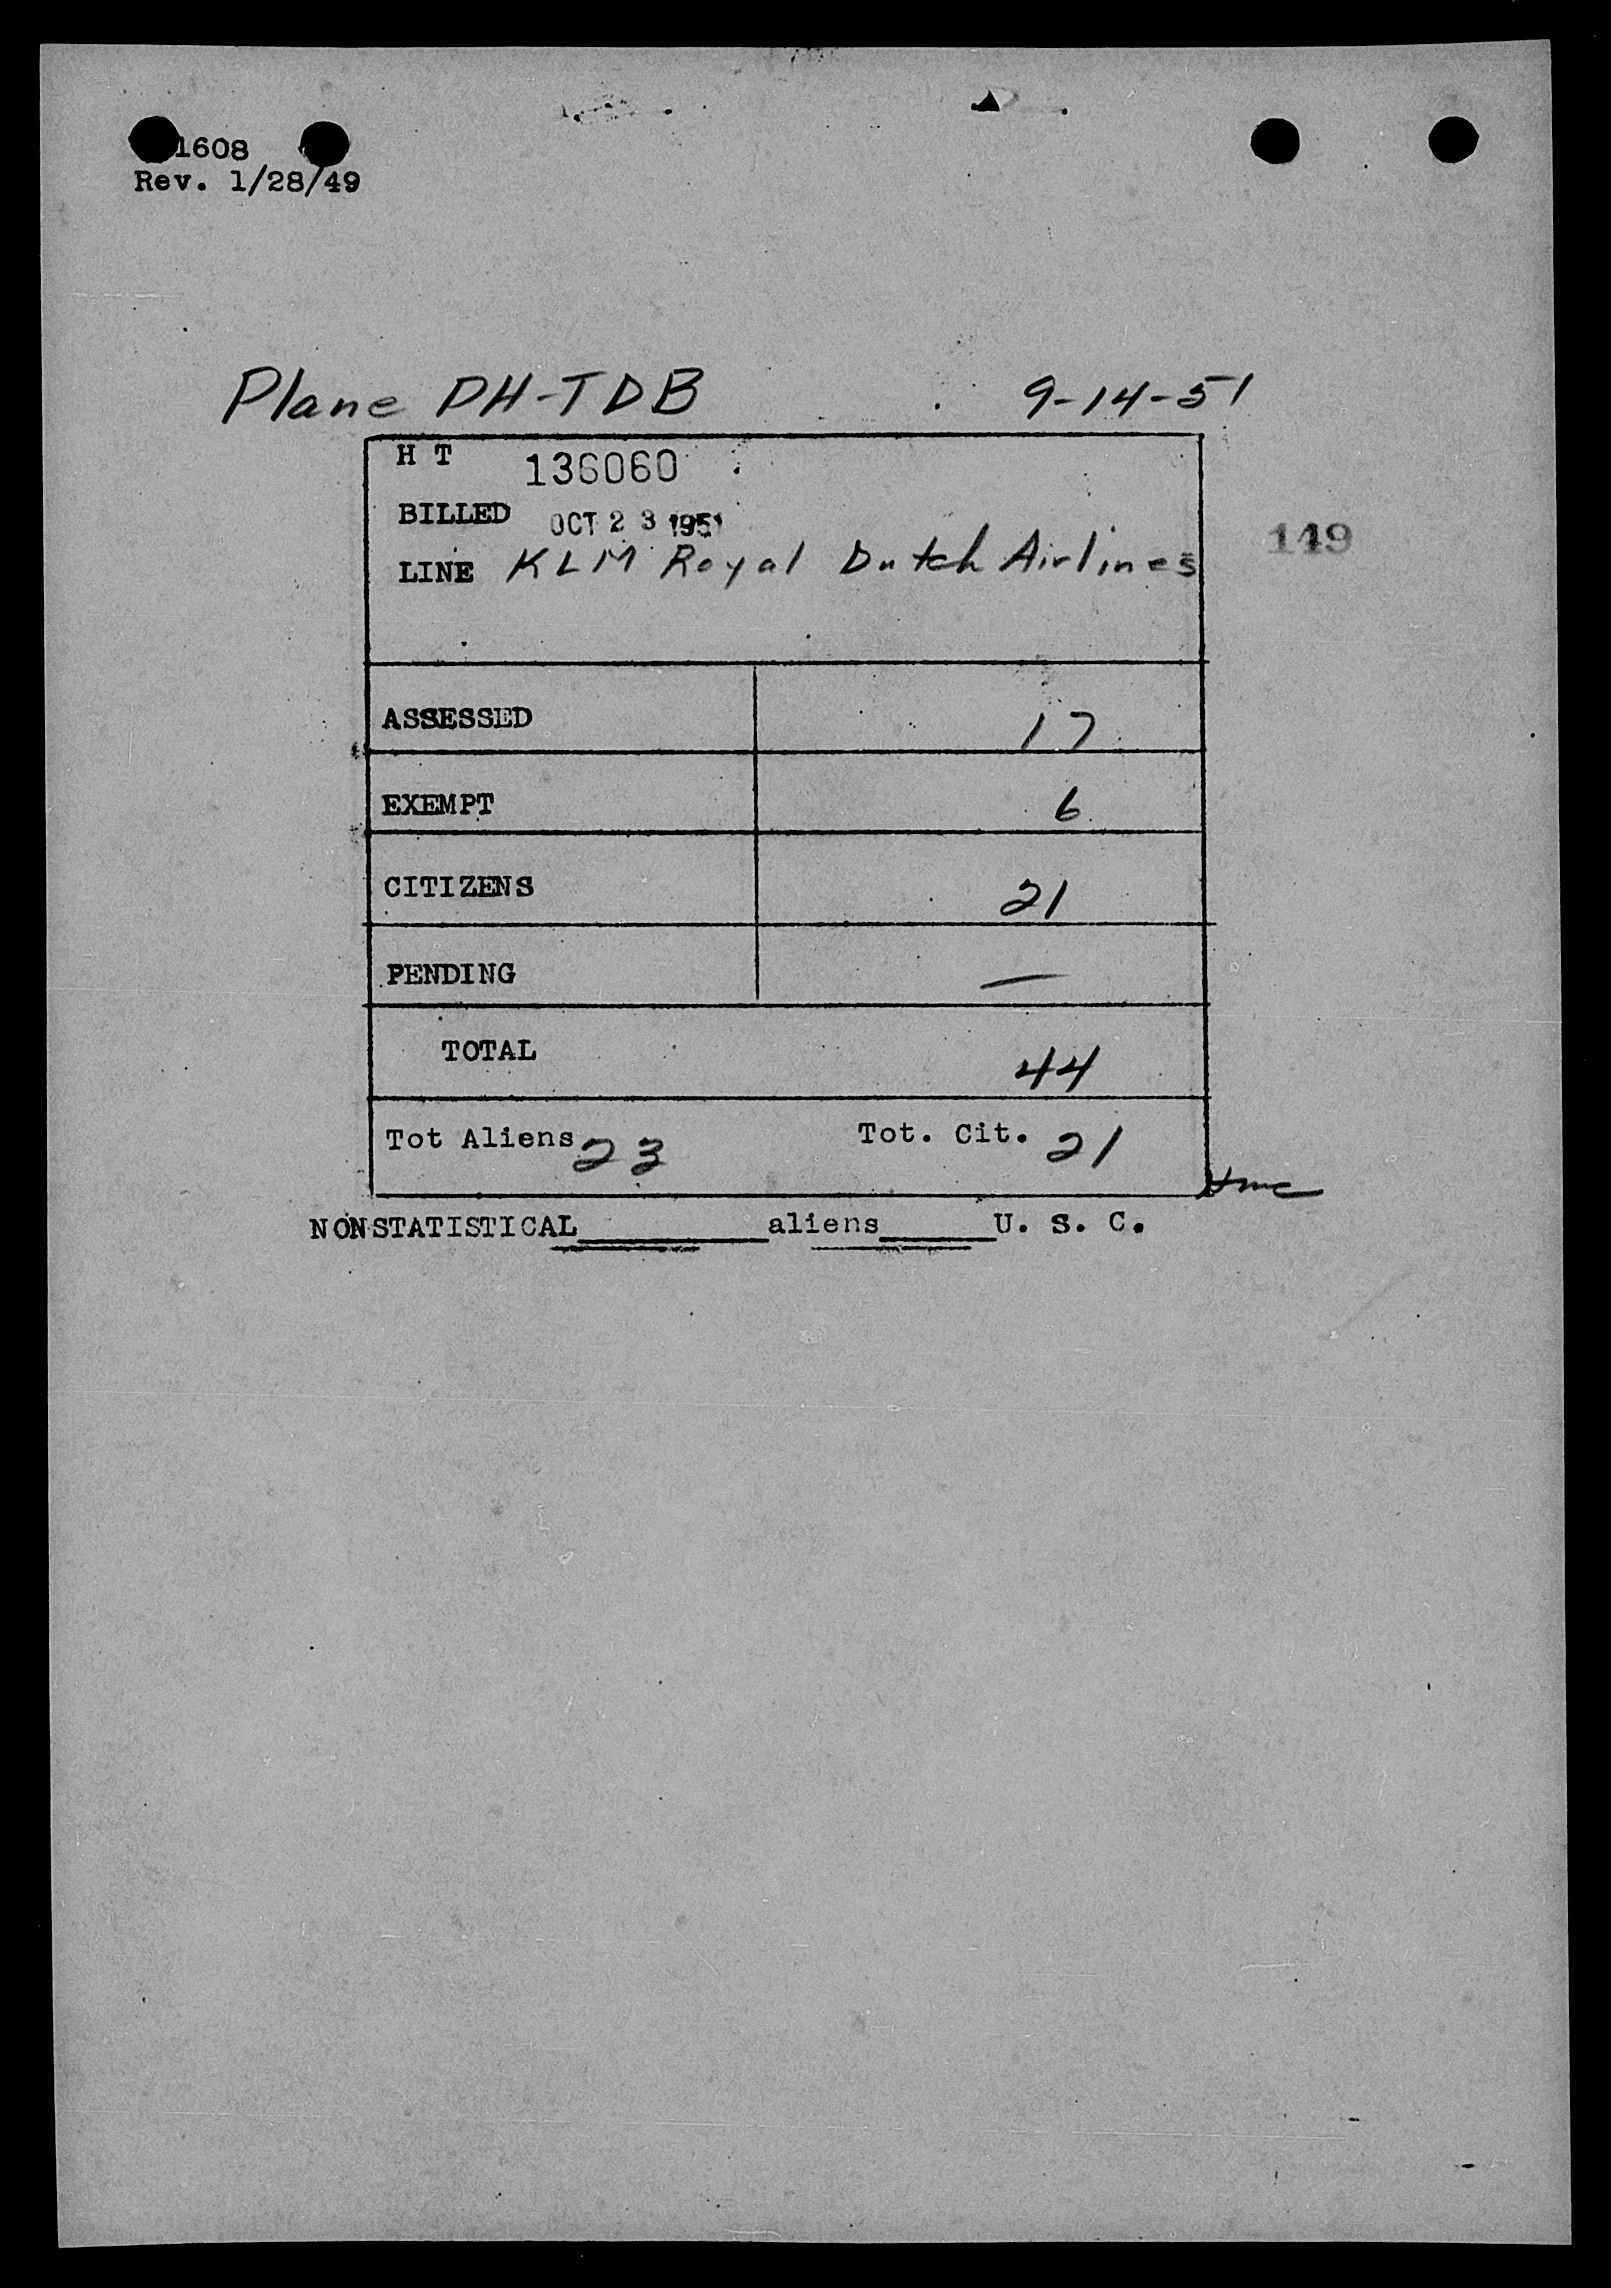 1608
Rev. 1/28/49
Plane PH-TDB 9-14-51
H T 136060
BILLED OCT 23 1951
149
LINE KLM Royal Dutch Airlines
ASSESSED 17
EXEMPT 6
CITIZENS 21
PENDING —
TOTAL 44
Tot Aliens 23 Tot. Cit. 21
NONSTATISTICAL__________aliens______U. S. C.